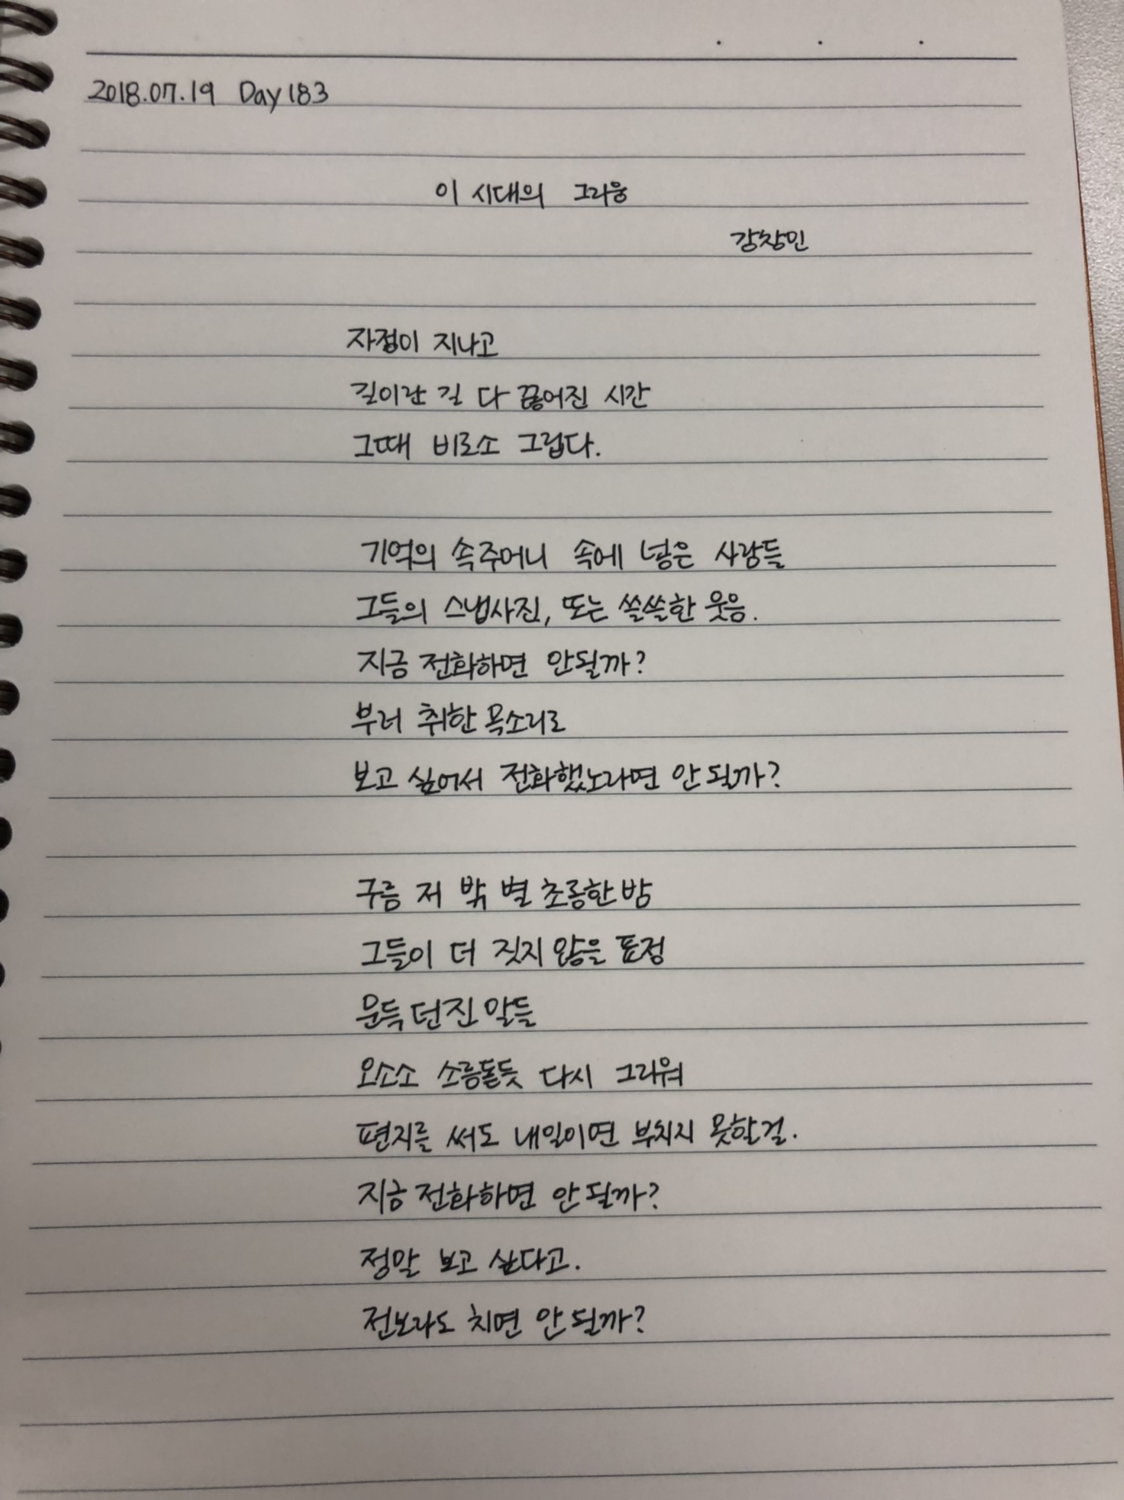 2018.07.19 Day 183
이 시대의 그리움
강창민
자정이 지나고
길이란 길 다 끊어진 시간
그때 비로소 그립다.
기억의 속주머니 속에 넣은 사람들
그들의 스냅사진, 또는 쓸쓸한 웃음.
지금 전화하면 안될까?
부러 취한 목소리로
보고 싶어서 전화했노라면 안 될까?
구름 저 밖 별 초롱한 밤
그들이 더 짓지 않을 표정
문득 던진 말들
오소소 소름돋듯 다시 그리워
편지를 써도 내일이면 부치지 못할걸.
지금 전화하면 안 될까?
정말 보고 싶다고.
전보라도 치면 안 될까?